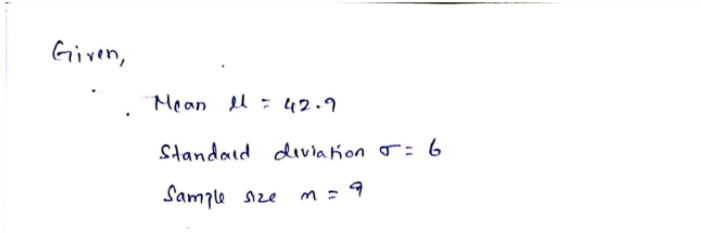 Given,
Mean μ = 42.9
Standard deviation σ = 6
Sample size n = 9